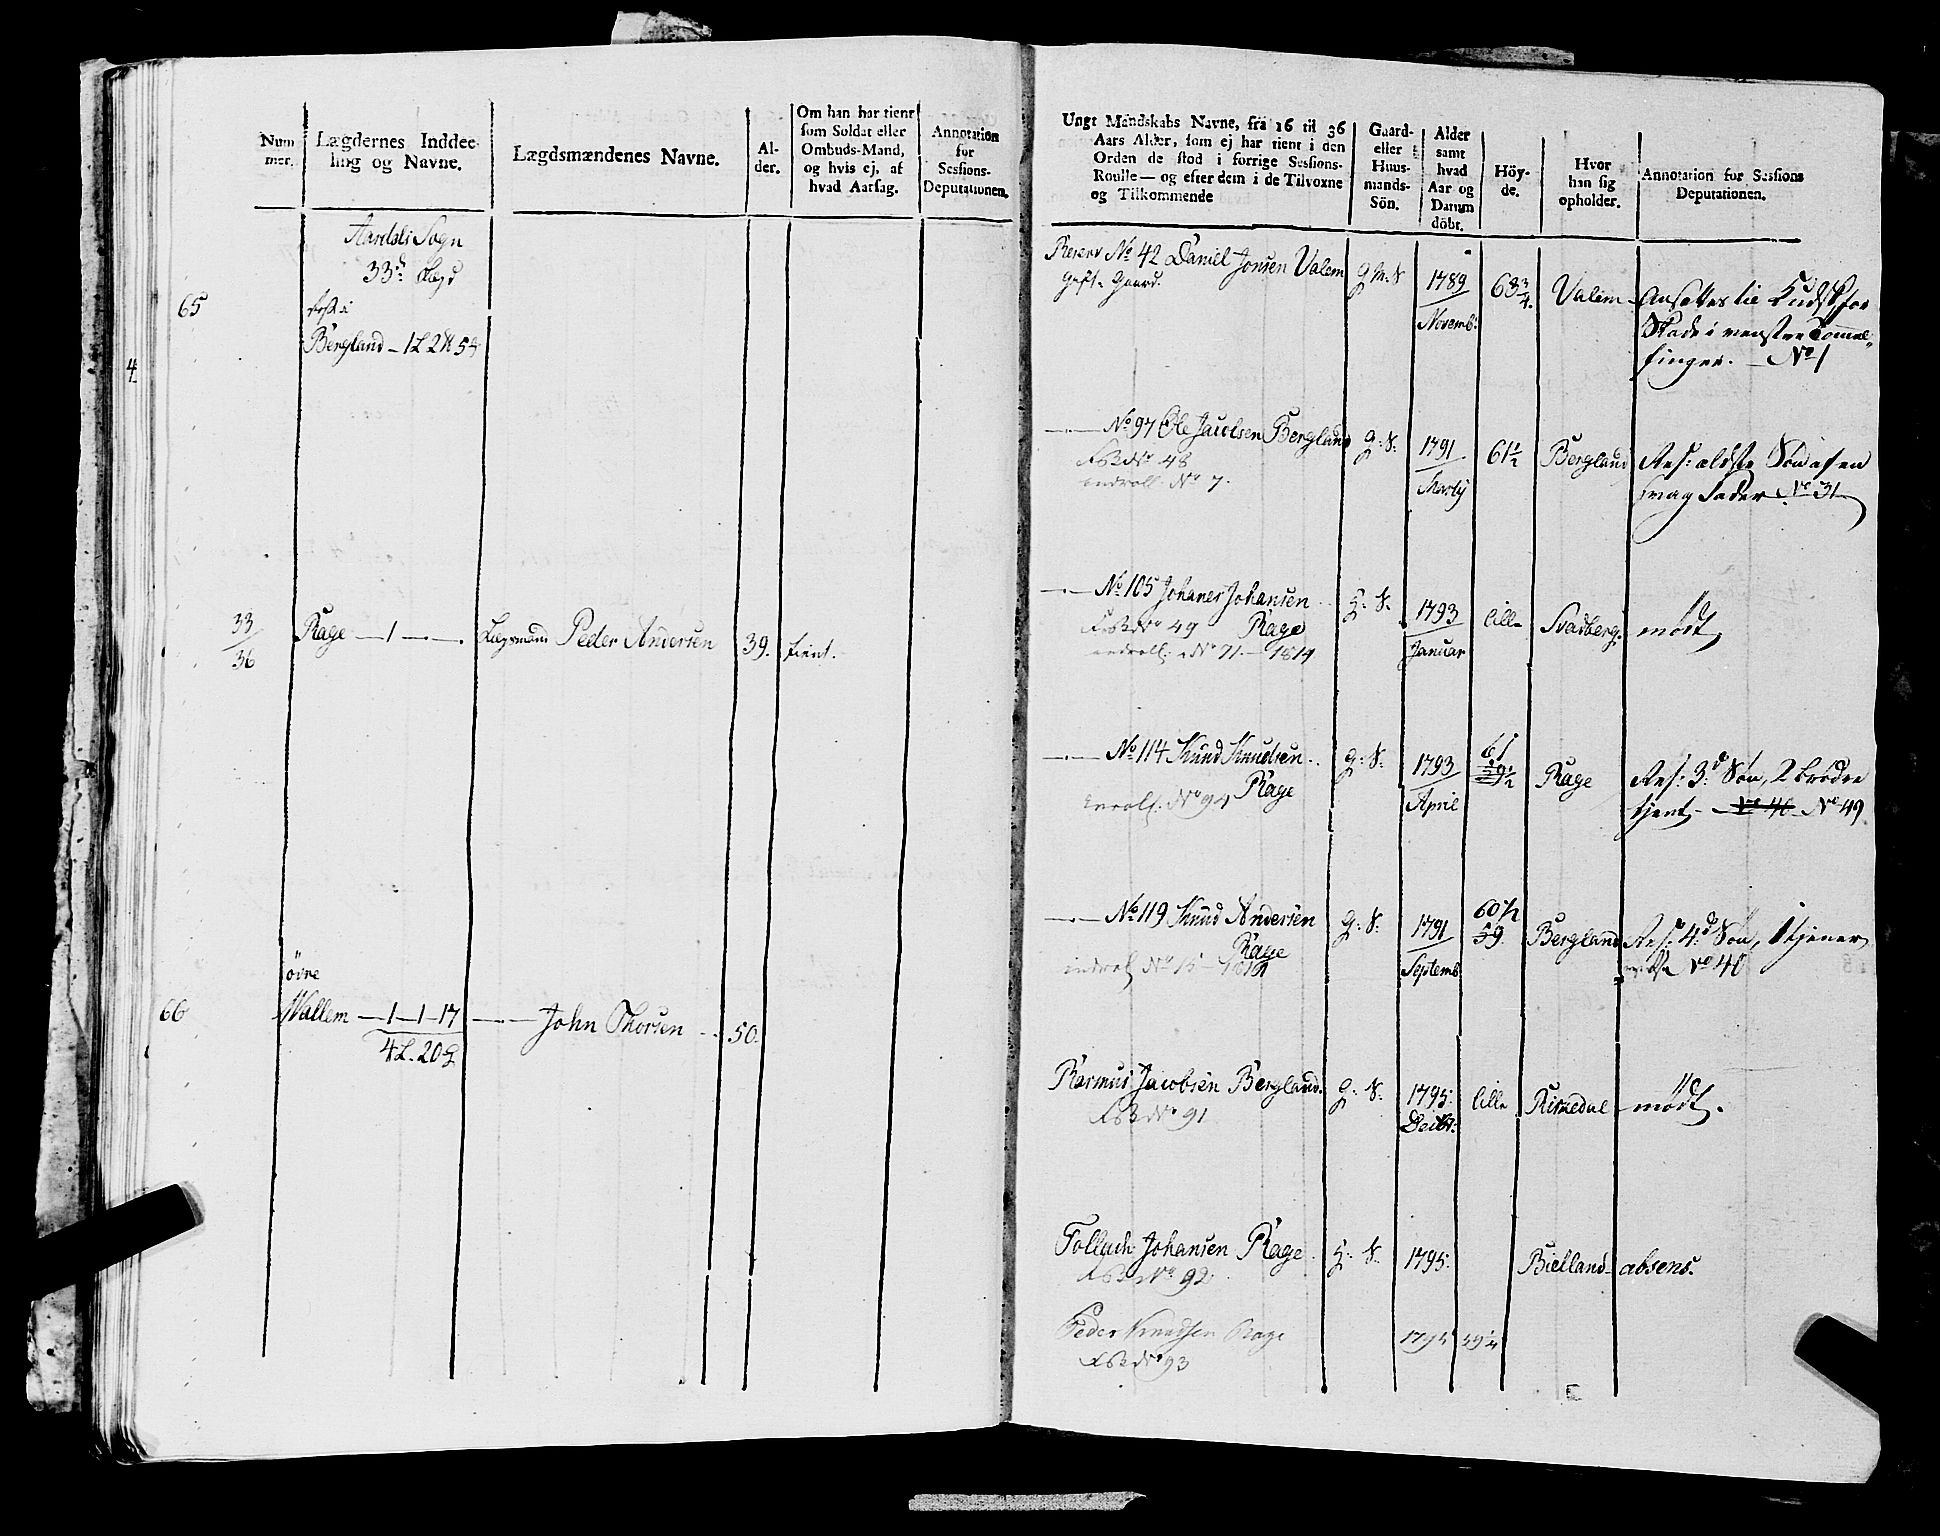 Num
mer.
Lægdernes Inddee-
ling og Navne.
Lægdsmændenes Navne.
Al-
der.
Om han har tient
som Soldat eller
Ombuds-Mand,
og hvis ej, af
hvad Aarsag.
Annotation
for
Sessions-
Deputationen.
Aardals Sogn
33d Lægd
65
Bergland - 1 L 2
4
33
36
Rage - 1 -
Lægsmand Peder Andersen
39.
tient.
66
övre
Wallem - 1 - 1 - 17
4 L. 20
John Thorsen
50.
Ungt Mandskabs Navne, fra 16 til 36
Aars Alder, som ej har tient i den
Orden de stod i forrige Sessions-
Roulle — og efter dem i de Tilvoxne
og Tilkommende
Gaard-
eller
Huus-
mands-
Sön.
Alder
samt
hvad
Aar og
Datum
döbt.
Höy-
de.
Hvor
han sig
opholder.
Annotation for Sessions
Deputationen.
Reserv No 42 Daniel Jonsen Valem
Gift. Gaard.
G M S
1789
Novemb:
68 3/4.
Valem
Ansættes til Kudsk for
Skade i venstre Tommel-
finger. - No 1
No 97 Ole Jacobsen Bergland
No 48
No 7.
G: S:
1791
Martÿ
61 1/2
Bergland
Res: ældste Søn af en
svag Fader No 31
No 105 Johanes Johansen
No 49 Rage
No 71. - 1814
H: S.
1793
Januar
lille
Svadberg.
mödt
No 114 Knud Knudsen
Rage
No 94
G: S:
1793
April
61
59 1/2
Rage
Res: 3d Søn, 2 brödre
tjent - No 40 No 49
No 119 Knud Andersen
Rage
No 15
G: S:
1791
Septemb
60 1/2
59.
Bergland
Res: 4d Søn, 1 tjener
No 40
Rasmus Jacobsen Bergland.
No 91
G: S:
1795.
Decbr:
lille
Riskedal
mödt.
Tollach Johansen Rage
No 92
H: S.
1795.
Bielland
absens.
Peder Knudsen Rage
No 93
1795
59 1/4